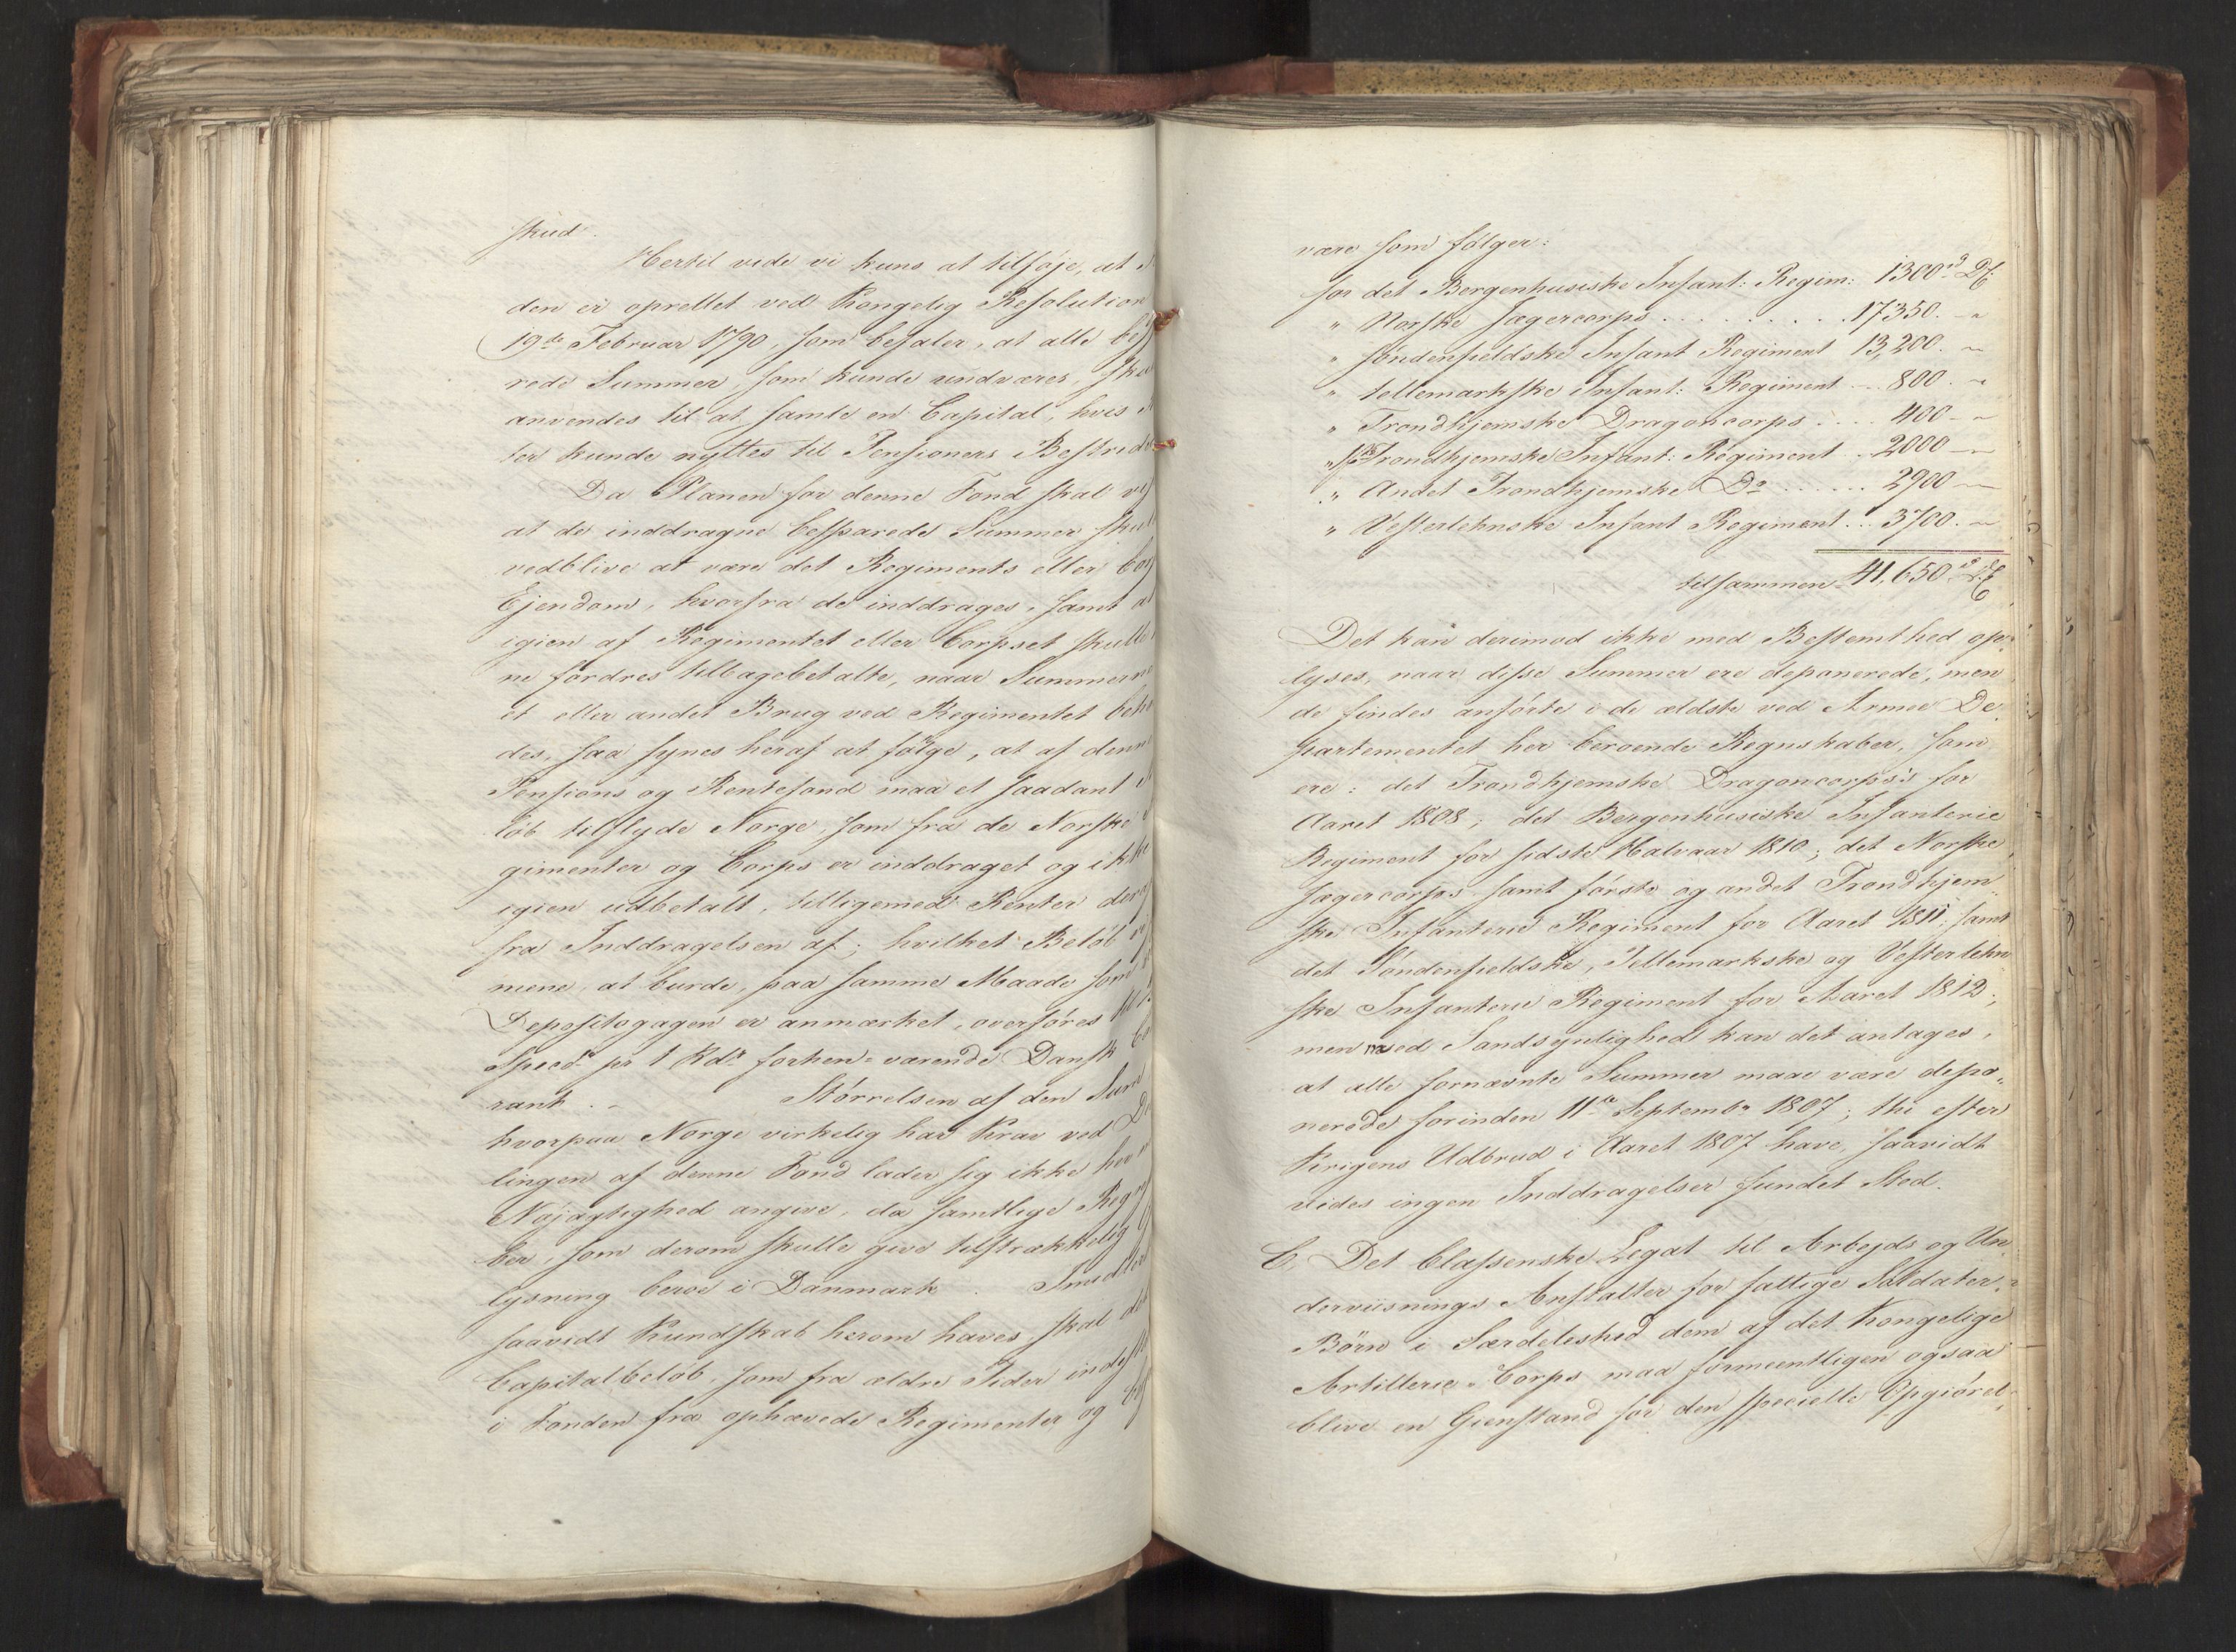 skud.
Hertil vide vi kuns at tilføje, at
den er oprettet ved Kongelig Resolution
19de Februar 1790, som befaler, at alle besp
rede Summer, som kunde undværes, ska
anvendes til at samle en Capital, hvis
ter kunde nyttes til Pensioners Bestrid
Da Planen for denne Fond skal
at de inddragne besparede Summer skul
vedblive at være det Regiments eller Cor
Ejendom, hvorfra de inddrages, samt at
igien af Regimentet eller Corpset skulle
ne fordres tilbagebetalte, naar Summerne
et eller andet Brug ved Regimentet beho
des, saa synes heraf at følge, at af denne
Pensions og Rentefond maa et saadant
løb tilflyde Norge, som fra de Norske
gimenter og Corps er inddraget og ikke
igien udbetalt, tilligemed Renter deraf
fra Inddragelsen af; hvilket Beløb vi
mene, at burde, paa samme Maade som
Depositogagen er anmærket, overføres til
Specd. pr 1 Rdr forhen-værende Dansk Co
rant. – Størrelsen af den Sum
hvorpaa Norge virkelig har Krav ved De
lingen af denne Fond lader sig ikke her
Nøjagtighed angive, da samtlige Regn
ber, som derom skulle give tilstrækkelig
lysning beroe i Danmark. Imidler
saavidt Kundskab herom haves skal det
Capitalbeløb, som fra ældre Tider indest
i Fonden fra ophævede Regimenter og
være som følger:
for det Bergenhusiske Infant: Regim: 1300 rd DC.
" Norske Jægercorps . . . . . . . . . 17350. – "
" søndenfieldske Infant Regiment 13,200. –
" tellemarkske Infant: Regiment . . 800. –
" Trondhjemske Dragoncorps . . . . 400 – –
" 1ste Trondhjemske Infant: Regiment . 2000 –
" Andet Trondhjemske Do . . . . . . 2900 –
" Vesterlehnske Infant Regiment . . 3700. –
tilsammen 41,650 rd DC
Det kan derimod ikke med Bestemthed op-
lyses, naar disse Summer ere deponerede, men
de findes anførte i de ældste ved Armee De-
partementet her beroende Regnskaber, som
ere: det Trondhjemske Dragoncorps's for
Aaret 1808; det Bergenhusiske Infanterie
Regiment for sidste Halvaar 1810; det Norske
Jægercorps samt første og andet Trondhjem-
ske Infanterie Regiment for Aaret 1811. samt
det Søndenfieldske, Tellemarkske og Vesterlehn-
ske Infanterie Regiment for Aaret 1812;
men med Sandsynlighed kan det antages,
at alle fornævnte Summer maae være depo-
nerede forinden 11te Septembr 1807; thi efter
Krigens Udbrud i Aaret 1807 have, saavidt
vides ingen Inddragelser fundet Sted.
C. Det Classenske Legat til Arbejds og Un-
derviisnings Anstalter for fattige Soldater-
Børn i Særdeleshed dem af det Kongelige
Artillerie-Corps maa formeentligen ogsaa
blive en Gienstand for den specielle Opgiørel-